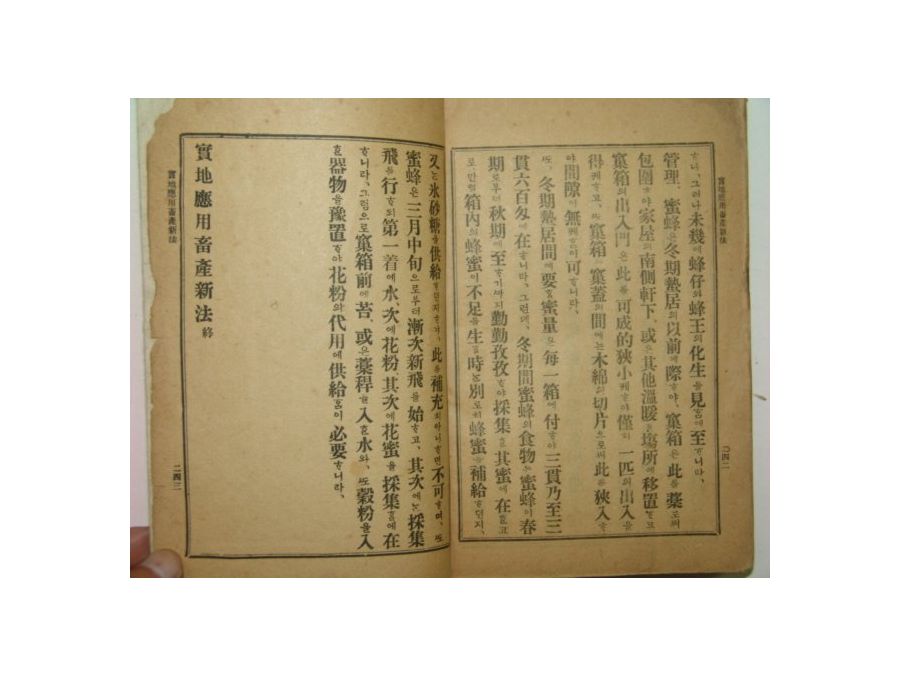 實地應用畜產新法
二四二
ᄒᆞ니, 그러나 未幾에 蜂仔의 蜂王의 化生을 見ᄒᆞᆷ에 至ᄒᆞ니라,
管理. 蜜蜂은 冬期蟄居의 以前에 際ᄒᆞ야, 窠箱은 此를 藁로써
包圍ᄒᆞ야 家屋의 南側軒下, 或은 其他溫暖ᄒᆞᆫ 塲所에 移置ᄒᆞ고
窠箱의 出入門은 此를 可成的狹小케ᄒᆞ야 僅히 一匹의 出入을
得케ᄒᆞ고, ᄯᅩ 窠箱, 窠蓋의 間에는 木綿의 切片으로써 此를 狹入ᄒᆞ
야 間隙이 無케ᄒᆞᆷ이 可ᄒᆞ니라,
ᄯᅩ, 冬期蟄居間에 要ᄒᆞᆯ 蜜量은 每一箱에 付ᄒᆞ야 三貫乃至三
貫六百匁에 在ᄒᆞ니라, 그런데, 冬期間蜜蜂의 食物은 蜜蜂이 春
期로부터 秋期에 至ᄒᆞ기ᄭᆞ지 勤勤孜孜ᄒᆞ야 採集ᄒᆞᆫ 其蜜에 在ᄒᆞᆫ고
로 만일 箱內의 蜂蜜이 不足을 生ᄒᆞᆯ 時는 別로히 蜂蜜을 補給ᄒᆞ던지,
又는 氷砂糖을 供給ᄒᆞ던지ᄒᆞ야, 此를 補充치아니ᄒᆞ면 不可ᄒᆞ며, ᄯᅩ
蜜蜂은 三月中旬으로부터 漸次新飛를 始ᄒᆞ고, 其次에는 採集
飛를 行ᄒᆞ되 第一着에 水, 次에 花粉, 其次에 花蜜을 採集ᄒᆞᆷ에 在
ᄒᆞ니라, 그럼으로 窠箱前에 苔, 或은 藁稈을 入ᄒᆞᆫ 水와, ᄯᅩ 穀粉을 入
ᄒᆞᆫ 器物을 豫置ᄒᆞ야 花粉의 代用에 供給ᄒᆞᆷ이 必要ᄒᆞ니라,
實地應用畜產新法 終
實地應用畜產新法
二四三